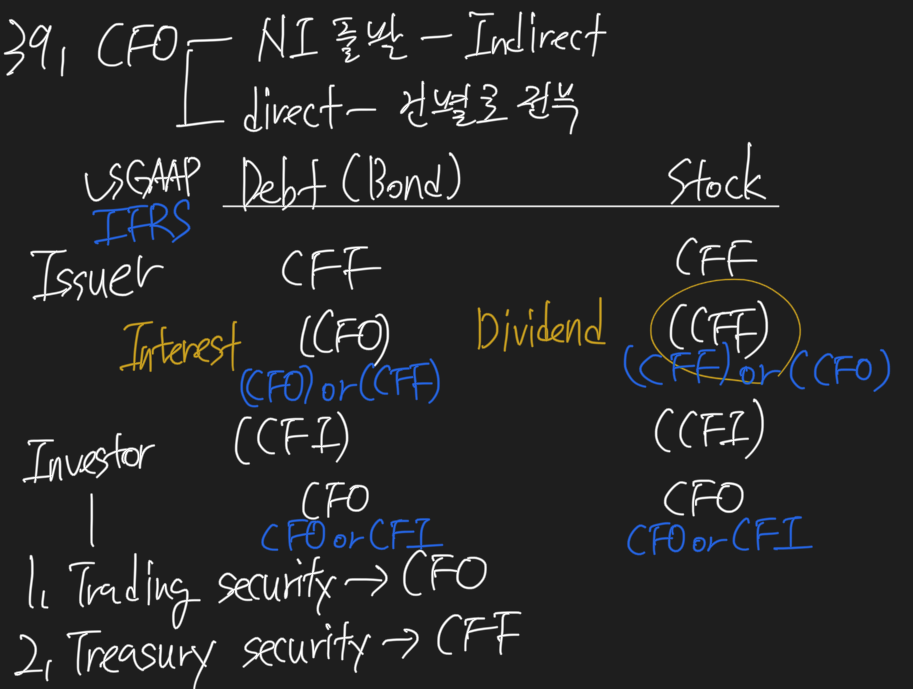 39, CFO - NI 출발 - Indirect
direct - 건별로 전부
USGAAP Debt (Bond) Stock
IFRS
Issuer CFF CFF
Interest (CFO) Dividend (CFF)
(CFO) or (CFF) (CFF) or (CFO)
Investor (CFI) (CFI)
CFO CFO
CFO or CFI CFO or CFI
1, Trading security → CFO
2, Treasury security → CFF